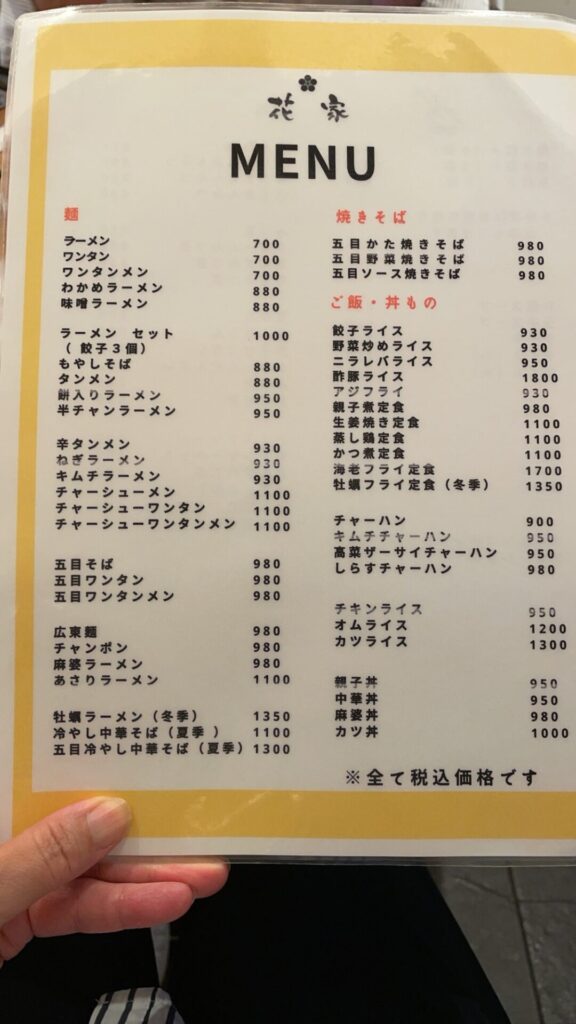 花家
MENU
麺
ラーメン 700
ワンタン 700
ワンタンメン 700
わかめラーメン 880
味噌ラーメン 880
ラーメン セット 1000
(餃子3個)
もやしそば 880
タンメン 880
餅入りラーメン 950
半チャンラーメン 950
辛タンメン 930
ねぎラーメン 930
キムチラーメン 930
チャーシューメン 1100
チャーシューワンタン 1100
チャーシューワンタンメン 1100
五目そば 980
五目ワンタン 980
五目ワンタンメン 980
広東麺 980
チャンポン 980
麻婆ラーメン 980
あさりラーメン 1100
牡蠣ラーメン(冬季) 1350
冷やし中華そば(夏季) 1100
五目冷やし中華そば(夏季) 1300
焼きそば
五目かた焼きそば 980
五目野菜焼きそば 980
五目ソース焼きそば 980
ご飯・丼もの
餃子ライス 930
野菜炒めライス 930
ニラレバライス 950
酢豚ライス 1800
アジフライ 930
親子煮定食 980
生姜焼き定食 1100
蒸し鶏定食 1100
かつ煮定食 1100
海老フライ定食 1700
牡蠣フライ定食(冬季) 1350
チャーハン 900
キムチチャーハン 950
高菜ザーサイチャーハン 950
しらすチャーハン 980
チキンライス 950
オムライス 1200
カツライス 1300
親子丼 950
中華丼 950
麻婆丼 980
カツ丼 1000
※全て税込価格です